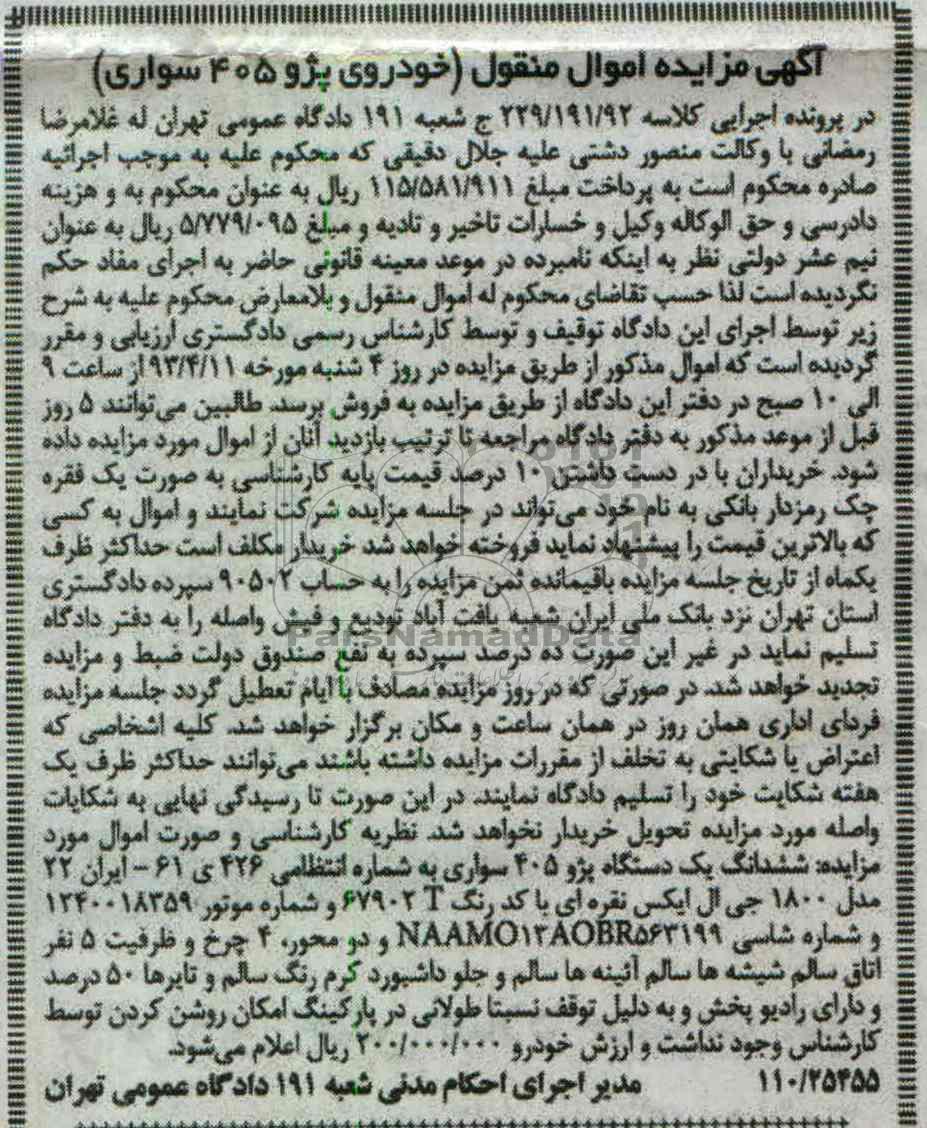 آگهی مزایده اموال منقول (خودروی پژو ۴۰۵ سواری)
در پرونده اجرایی کلاسه ۲۲۹/۱۹۱/۹۲ ج شعبه ۱۹۱ دادگاه عمومی تهران له غلامرضا
رمضانی با وکالت منصور دشتی علیه جلال دقیقی که محکوم علیه به موجب اجرائیه
صادره محکوم است به پرداخت مبلغ ۱۱۵/۵۸۱/۹۱۱ ریال به عنوان محکوم به و هزینه
دادرسی و حق الوکاله وکیل و خسارات تاخیر و تادیه و مبلغ ۵/۷۷۹/۰۹۵ ریال به عنوان
نیم عشر دولتی نظر به اینکه نامبرده در موعد معینه قانونی حاضر به اجرای مفاد حکم
نگردیده است لذا حسب تقاضای محکوم له اموال منقول و بلامعارض محکوم علیه به شرح
زیر توسط اجرای این دادگاه توقیف و توسط کارشناس رسمی دادگستری ارزیابی و مقرر
گردیده است که اموال مذکور از طریق مزایده در روز ۴ شنبه مورخه ۹۳/۴/۱۱ از ساعت ۹
الی ۱۰ صبح در دفتر این دادگاه از طریق مزایده به فروش برسد. طالبین می‌توانند ۵ روز
قبل از موعد مذکور به دفتر دادگاه مراجعه تا ترتیب بازدید آنان از اموال مورد مزایده داده
شود. خریداران با در دست داشتن ۱۰ درصد قیمت پایه کارشناسی به صورت یک فقره
چک رمزدار بانکی به نام خود می‌تواند در جلسه مزایده شرکت نمایند و اموال به کسی
که بالاترین قیمت را پیشنهاد نماید فروخته خواهد شد خریدار مکلف است حداکثر ظرف
یکماه از تاریخ جلسه مزایده باقیمانده ثمن مزایده را به حساب ۹۰۵۰۲ سپرده دادگستری
استان تهران نزد بانک ملی ایران شعبه یافت آباد تودیع و فیش واصله را به دفتر دادگاه
ParsNamadData
تسلیم نماید در غیر این صورت ده درصد سپرده به نفع صندوق دولت ضبط و مزایده
تجدید خواهد شد. در صورتی که در روز مزایده مصادف با ایام تعطیل گردد جلسه مزایده
فردای اداری همان روز در همان ساعت و مکان برگزار خواهد شد. کلیه اشخاصی که
اعتراض یا شکایتی به تخلف از مقررات مزایده داشته باشند می‌توانند حداکثر ظرف یک
هفته شکایت خود را تسلیم دادگاه نمایند. در این صورت تا رسیدگی نهایی به شکایات
واصله مورد مزایده تحویل خریدار نخواهد شد. نظریه کارشناسی و صورت اموال مورد
مزایده: ششدانگ یک دستگاه پژو ۴۰۵ سواری به شماره انتظامی ۴۲۶ ی ۶۱ - ایران ۲۲
مدل ۱۸۰۰ جی ال ایکس نقره ای با کد رنگ ۶۷۹۰۲ T و شماره موتور ۱۲۴۰۰۱۸۳۵۹
و شماره شاسی NAAMO۱۳AOBR۵۶۳۱۹۹ و دو محور، ۴ چرخ و ظرفیت ۵ نفر
اتاق سالم شیشه ها سالم آئینه ها سالم و جلو داشبورد کرم رنگ سالم و تایرها ۵۰ درصد
و دارای رادیو پخش و به دلیل توقف نسبتا طولانی در پارکینگ امکان روشن کردن توسط
کارشناس وجود نداشت و ارزش خودرو ۲۰۰/۰۰۰/۰۰۰ ریال اعلام می‌شود.
۱۱۰/۲۵۴۵۵ مدیر اجرای احکام مدنی شعبه ۱۹۱ دادگاه عمومی تهران